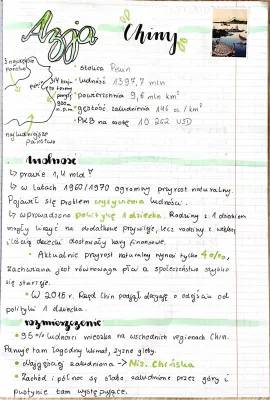 Azja
Chiny
3 największe
państwo
3/4 kraju
to tereny
powyżej
500 m
n.p.m.
najludniejsze
państwo
• stolica Pekin
• ludność 1397,7 mln
• powierzchnia 9,6 mln km²
• gęstość zaludnienia 146 os/km²
• PKB na osobę 10 262 USD
Ludność
↳ prawie 1,4 mld!
↳ w latach 1960/1970 ogromny przyrost naturalny.
Pojawił się problem wyżywienia ludności.
↳ wprowadzono politykę 1 dziecka. Rodziny z 1 dzieckiem
mogły liczyć na dodatkowe przywileje, lecz rodziny z większą
ilością dzieci dostawały kary finansowe.
• Aktualnie przyrost naturalny wynosi tylko 4‰,
zachowana jest równowaga płci a społeczeństwo szybko
się starzeje.
• W 2015r. Rząd Chin podjął decyzję o odejściu od
polityki 1 dziecka.
rozmieszczenie
• 95% ludności mieszka na wschodnich regionach Chin.
Panuje tam łagodny klimat, żyzne gleby.
• Najgęściej zaludniona → Niz. Chińska
• Zachód i północ są słabo zaludnione przez góry i
pustynie tam występujące.